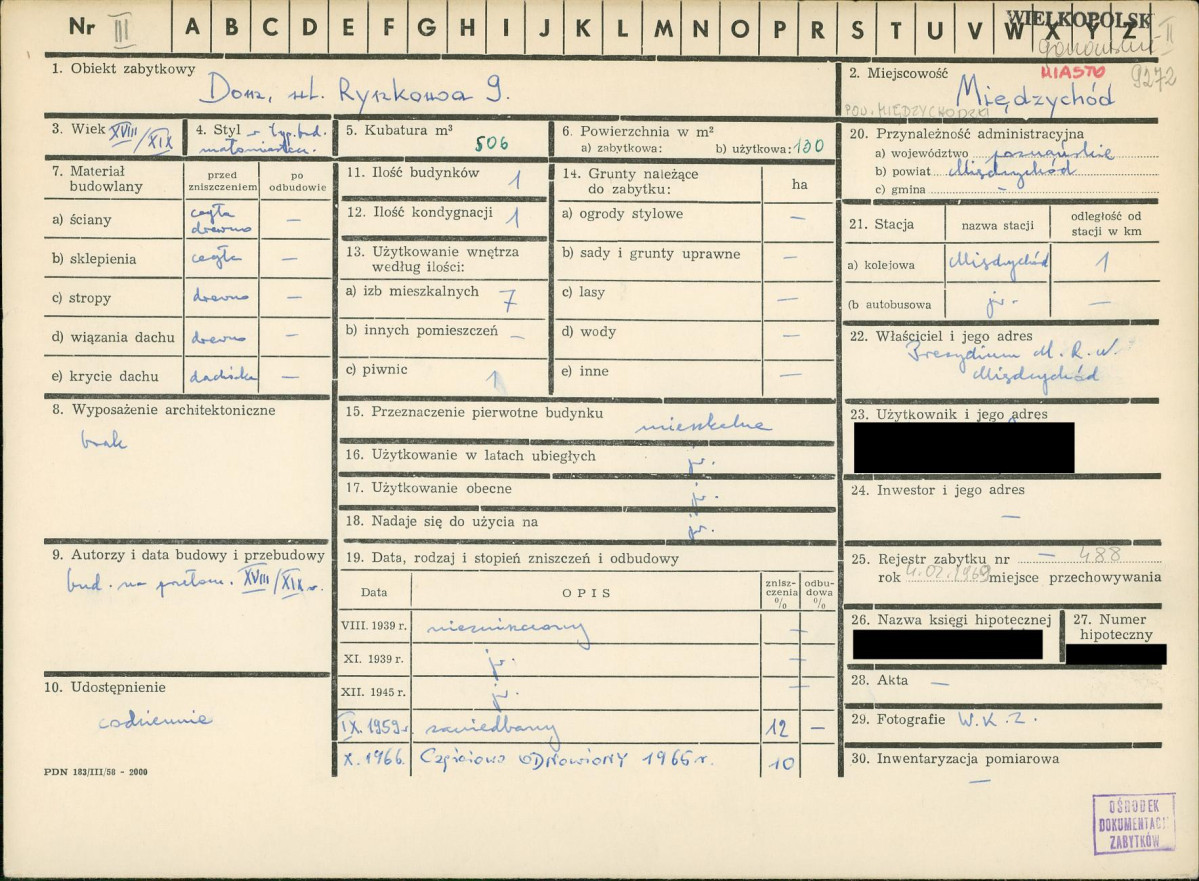 Nr III A B C D E F G H I J K L M N O P R S T U V W X Y Z
WIELKOPOLSK
II
MIASTO 9272
1. Obiekt zabytkowy
Dom, ul. Rynkowa 9.
2. Miejscowość
Międzychód
POW. MIĘDZYCHODZKI
3. Wiek XVIII/XIX
4. Styl w typ. bud.
małomiasteczk.
5. Kubatura m³
506
6. Powierzchnia w m²
a) zabytkowa: b) użytkowa: 130
7. Materiał budowlany
przed zniszczeniem
po odbudowie
a) ściany cegła drewno —
b) sklepienia cegła —
c) stropy drewno —
d) wiązania dachu drewno —
e) krycie dachu dachówka —
8. Wyposażenie architektoniczne
brak
9. Autorzy i data budowy i przebudowy
bud. na przełom. XVIII/XIX w.
10. Udostępnienie
codziennie
PDN 183/III/58 - 2000
11. Ilość budynków 1
12. Ilość kondygnacji 1
13. Użytkowanie wnętrza
według ilości:
a) izb mieszkalnych 7
b) innych pomieszczeń —
c) piwnic 1
14. Grunty należące
do zabytku: ha
a) ogrody stylowe —
b) sady i grunty uprawne —
c) lasy —
d) wody —
e) inne —
15. Przeznaczenie pierwotne budynku
mieszkalne
16. Użytkowanie w latach ubiegłych jw.
17. Użytkowanie obecne jw.
18. Nadaje się do użycia na jw.
19. Data, rodzaj i stopień zniszczeń i odbudowy
Data OPIS zniszczenia % odbudowa %
VIII. 1939 r. niezniszczony —
XI. 1939 r. jw. —
XII. 1945 r. jw. —
IX. 1959 r. zaniedbany 12 —
X. 1966. Częściowo ODNOWIONY 1965 r. 10
20. Przynależność administracyjna
a) województwo poznańskie
b) powiat Międzychód
c) gmina —
21. Stacja nazwa stacji odległość od stacji w km
a) kolejowa Międzychód 1
(b autobusowa jw. —
22. Właściciel i jego adres
Prezydium M. R. N.
Międzychód
23. Użytkownik i jego adres
24. Inwestor i jego adres
—
25. Rejestr zabytku nr — 488
rok 4.02.1969 miejsce przechowywania
26. Nazwa księgi hipotecznej
27. Numer hipoteczny
28. Akta —
29. Fotografie W.K.Z.
30. Inwentaryzacja pomiarowa
—
OŚRODEK
DOKUMENTACJI
ZABYTKÓW